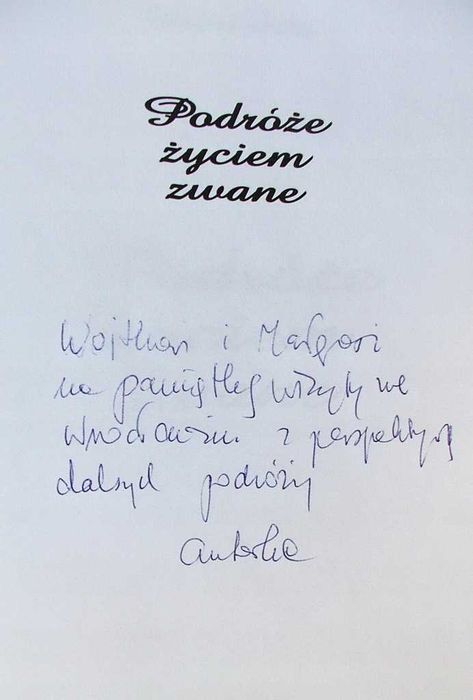 Podróże
życiem
zwane
Wojtkowi i Małgosi
na pamiątkę wizyty we
Wrocławiu z perspektywą
dalszych podróży
autorka